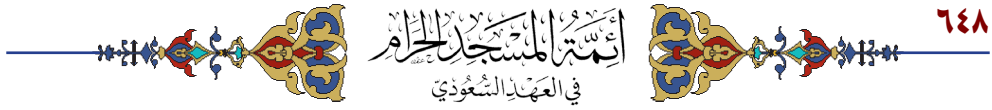 ٦٤٨
أَئِمَّةُ المَسْجِدِ الحَرَامِ
في العَهْدِ السُّعُودِيّ